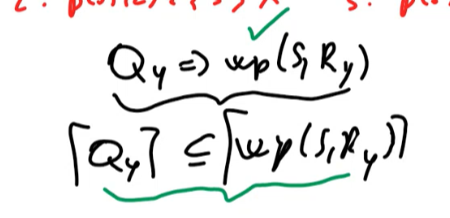 Q_y => wp(S, R_y)
⌈Q_y⌉ ⊆ ⌈wp(S, R_y)⌉